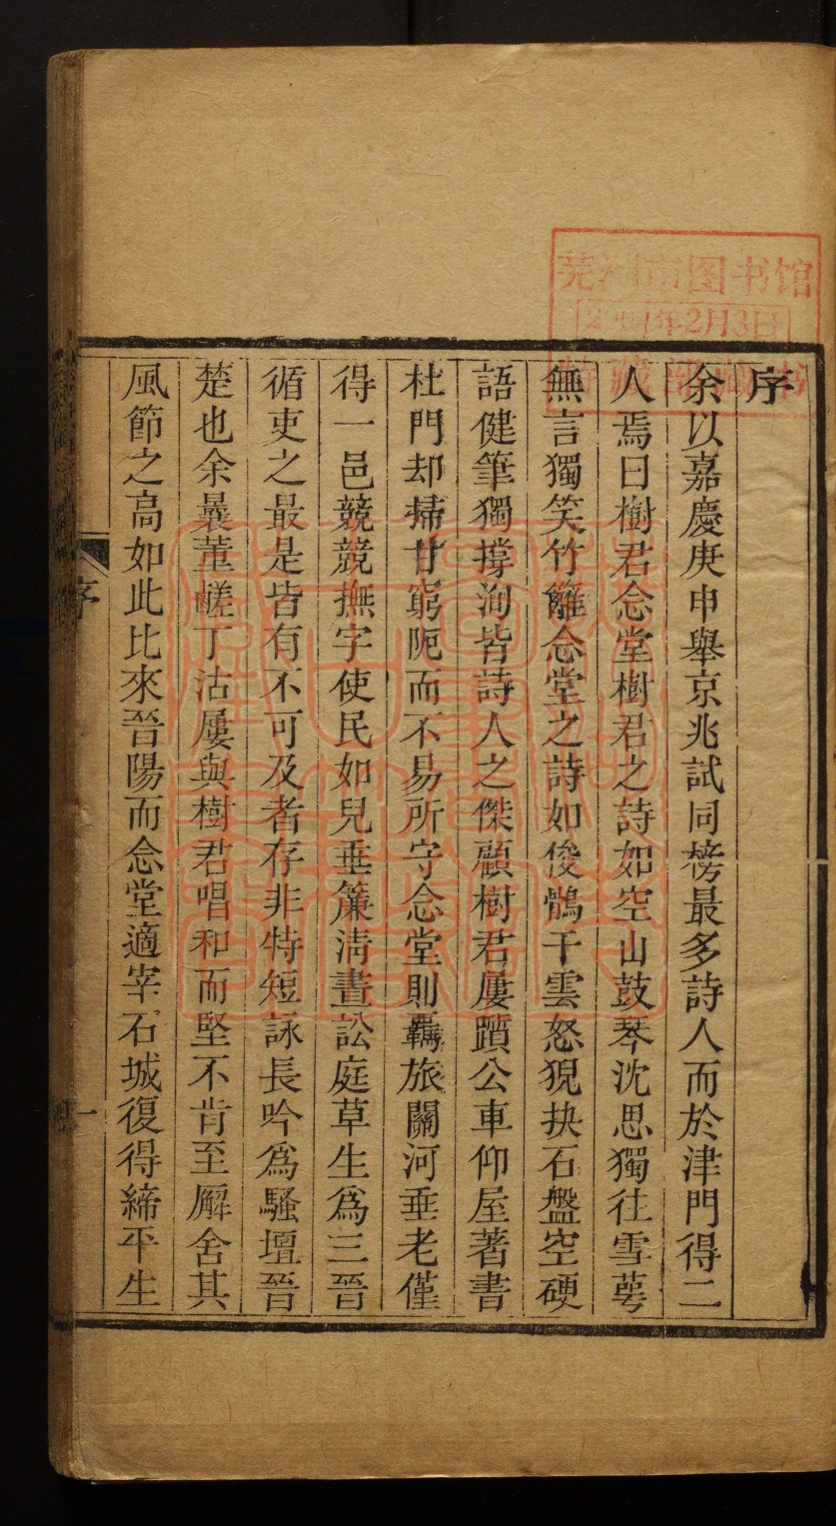 序
余以嘉慶庚申舉京兆試同榜最多詩人而於津門得二
人焉曰樹君念堂樹君之詩如空山鼓琴沈思獨往雪萼
無言獨笑竹籬念堂之詩如俊鶻干雲怒猊抉石盤空硬
語健筆獨撐洵皆詩人之傑顧樹君屢躓公車仰屋著書
杜門却掃甘窮阨而不易所守念堂則羈旅關河垂老僅
得一邑競競撫字使民如兒垂簾清晝訟庭草生爲三晉
循吏之最是皆有不可及者存非特短詠長吟爲騷壇晉
楚也余曩董鹺丁沽屢與樹君唱和而堅不肯至廨舍其
風節之高如此比來晉陽而念堂適宰石城復得締平生
序
一
芜湖市图书馆
年2月3日
藏